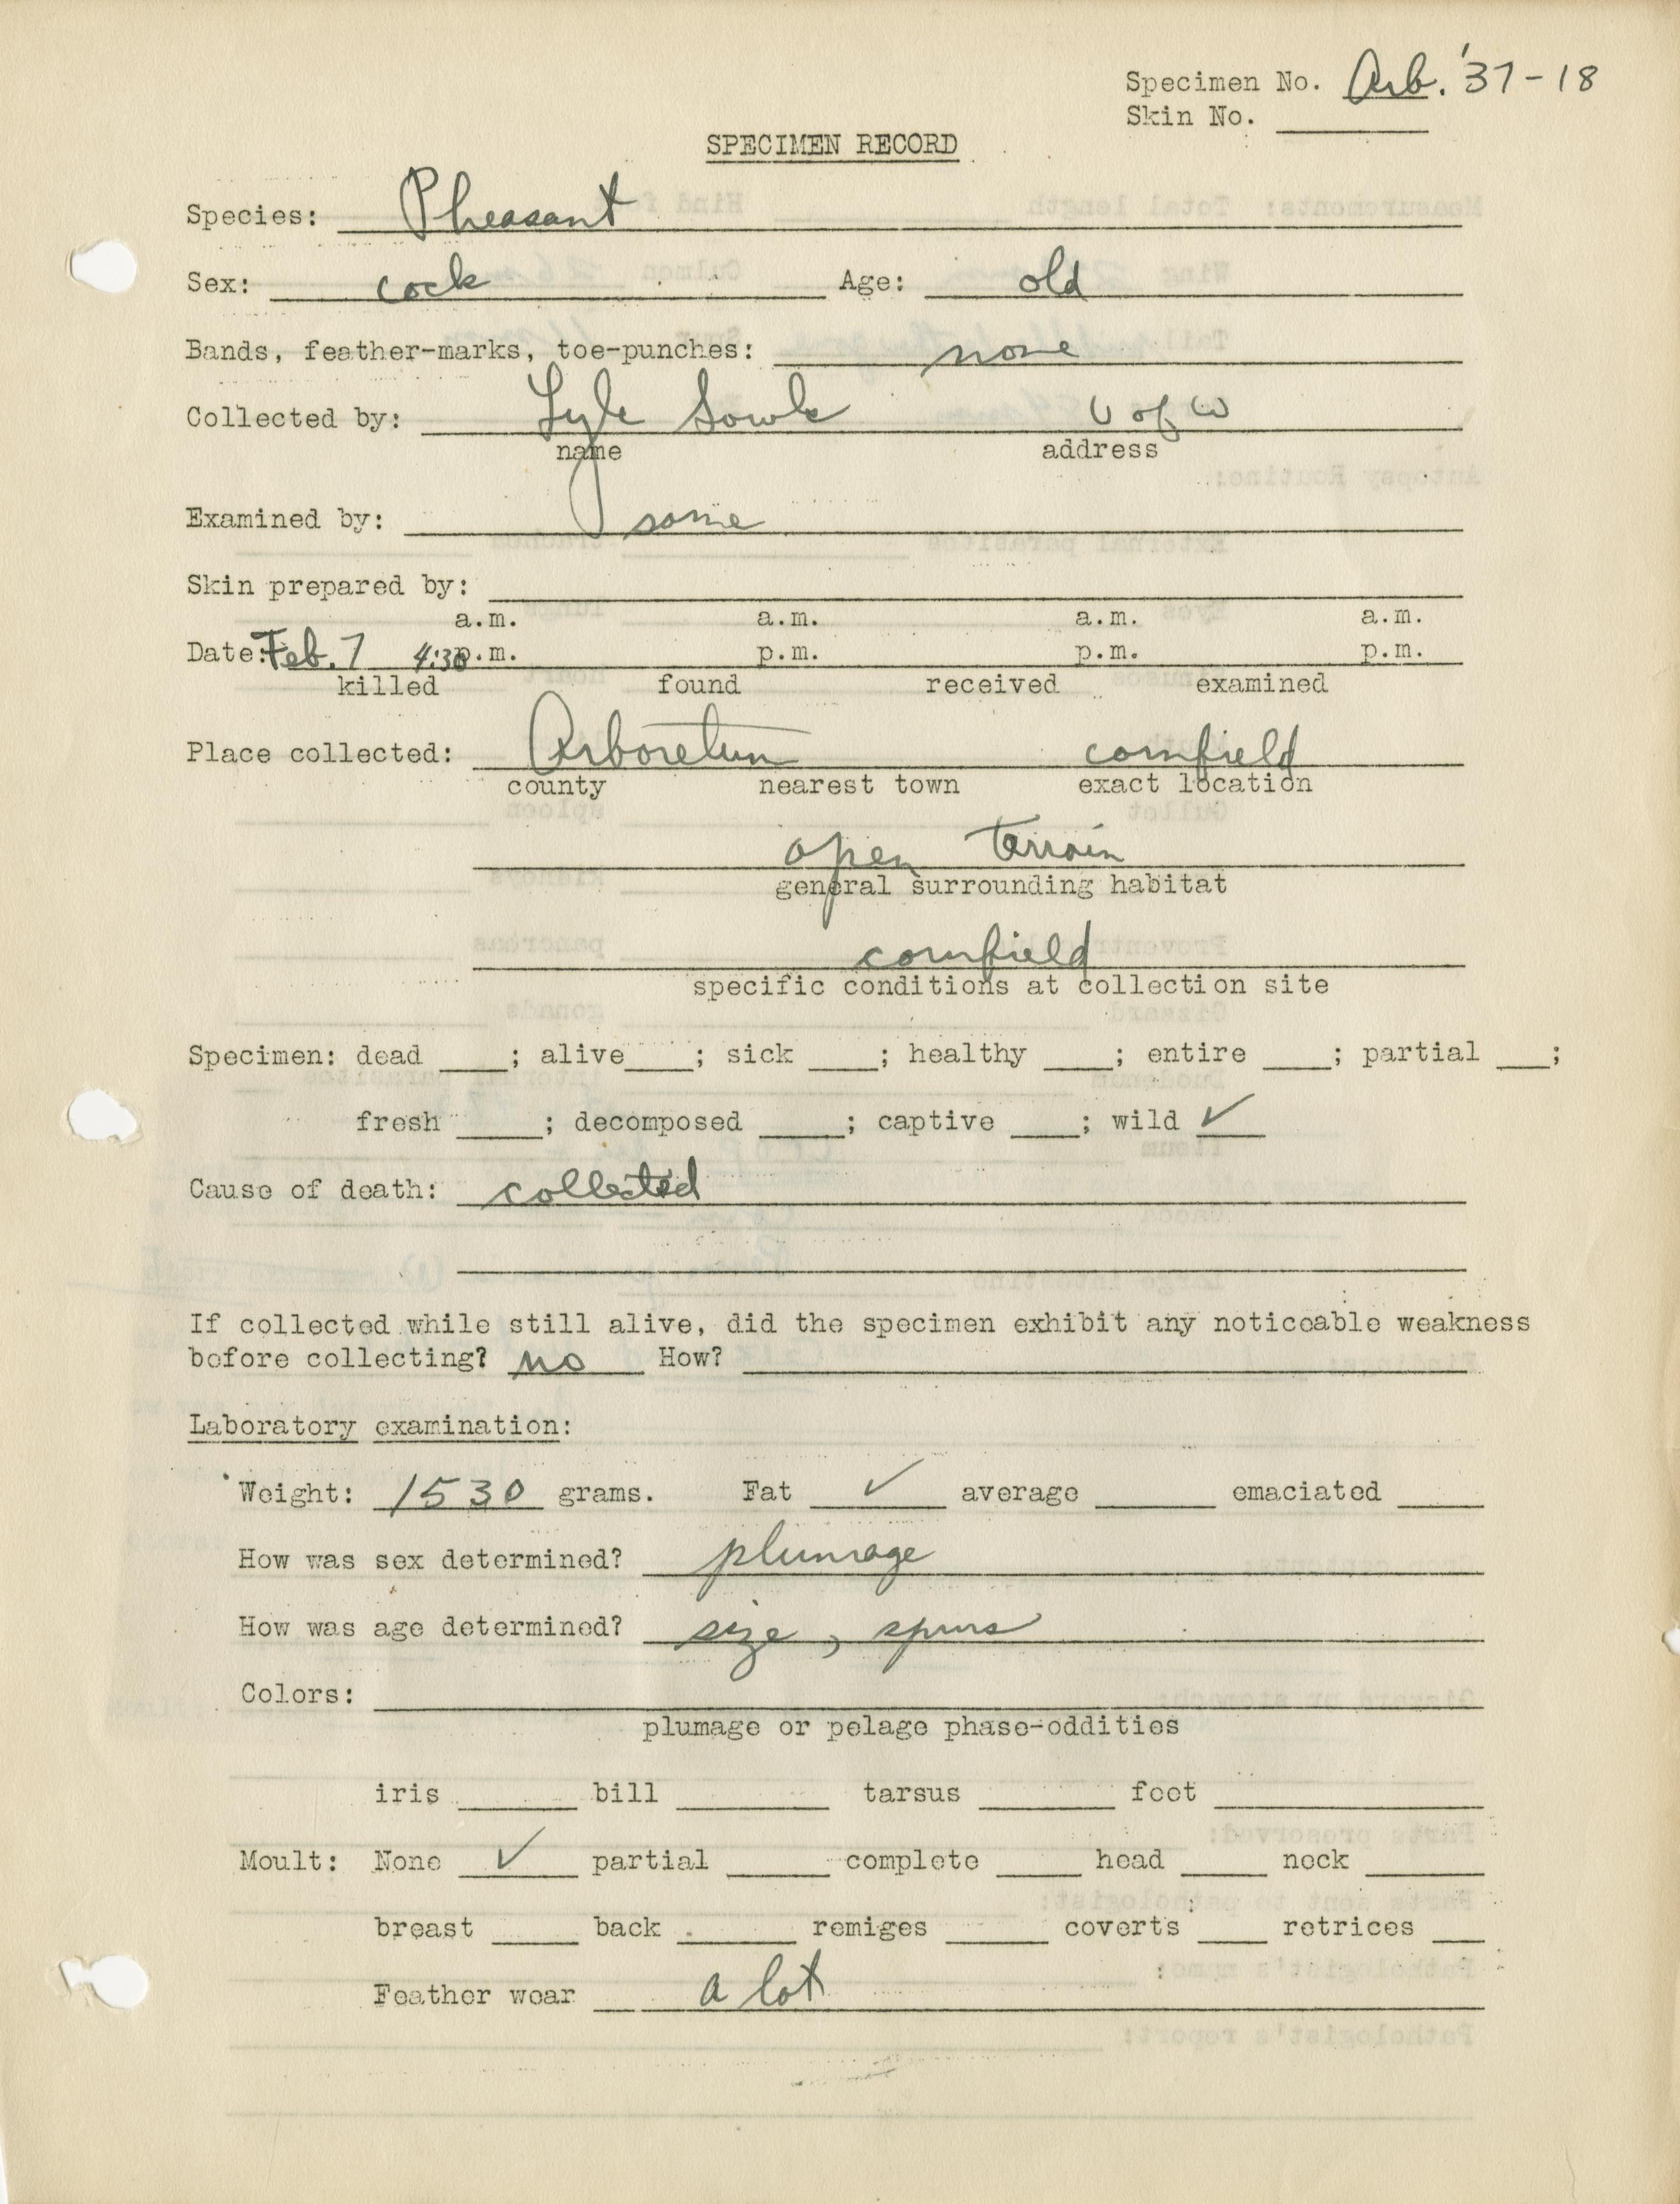 Specimen No. Arb. '37-18
Skin No. ____
SPECIMEN RECORD
Species: Pheasant
Sex: cock Age: old
Bands, feather-marks, toe-punches: none
Collected by: Lyle Sowls U of W
name address
Examined by: same
Skin prepared by:
a.m. a.m. a.m. a.m.
Date: Feb. 7 4:30 p.m. p.m. p.m. p.m.
killed found received examined
Place collected: Arboretum cornfield
county nearest town exact location
open terrain
general surrounding habitat
cornfield
specific conditions at collection site
Specimen: dead ____; alive ____; sick ____; healthy ____; entire ____; partial ___;
fresh ____; decomposed ____; captive ____; wild ✓
Cause of death: collected
If collected while still alive, did the specimen exhibit any noticeable weakness
before collecting? no How?
Laboratory examination:
Weight: 1530 grams. Fat ✓ average ____ emaciated ____
How was sex determined? plumage
How was age determined? size, spurs
Colors:
plumage or pelage phase-oddities
iris ____ bill ____ tarsus ____ foot ____
Moult: None ✓ partial ____ complete ____ head ____ neck ____
breast ____ back ____ remiges ____ coverts ____ retrices ____
Feather wear a lot